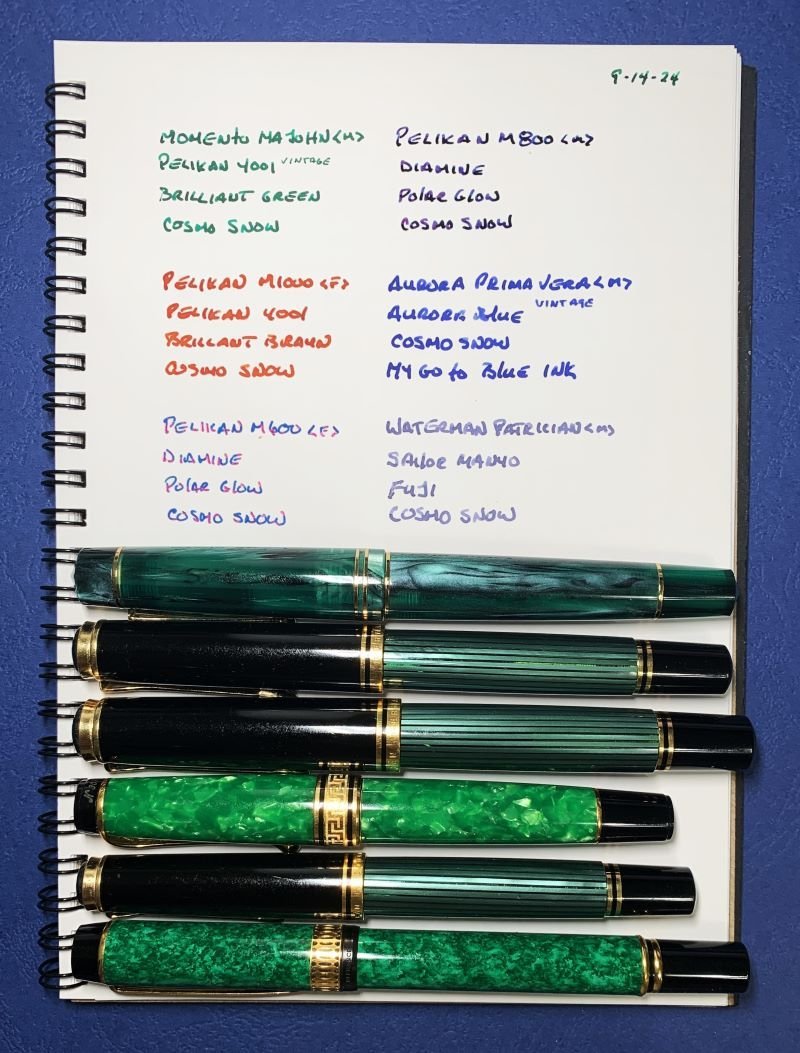 9-14-24
MOMENTO MAJOHN <M>
PELIKAN 4001 VINTAGE
BRILLIANT GREEN
COSMO SNOW
PELIKAN M800 <M>
DIAMINE
POLAR GLOW
COSMO SNOW
PELIKAN M1000 <F>
PELIKAN 4001
BRILLANT BRAUN
COSMO SNOW
AURORA PRIMAVERA <M>
AURORA BLUE VINTAGE
COSMO SNOW
MY GO to BLUE INK
PELIKAN M600 <F>
DIAMINE
POLAR GLOW
COSMO SNOW
WATERMAN PATRICIAN <M>
SAILOR MANYO
FUJI
COSMO SNOW